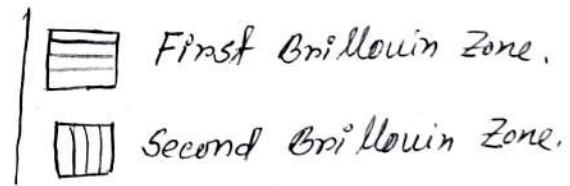 First Brillouin Zone.
Second Brillouin Zone.